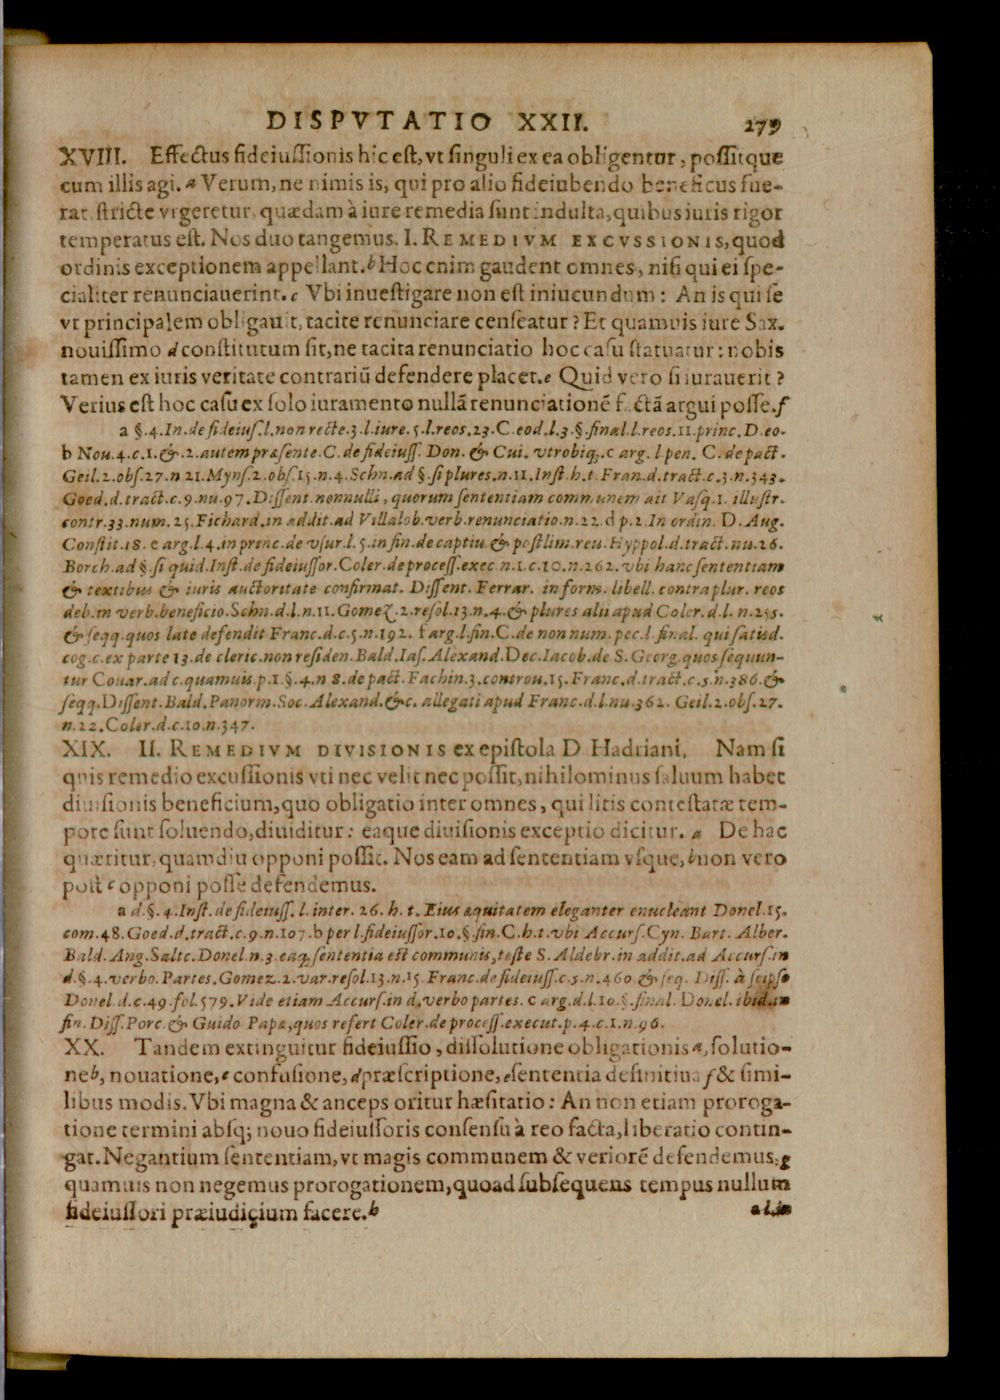 DISPVTATIO XXII. 279
XVIII. Effectus fideiuſſionis hic eſt, vt ſinguli ex ea obligentur, poſſitque
cum illis agi. a Verum, ne nimis is, qui pro alio fideiubendo beneficus fue-
rat ſtricte vrgeretur, quædam à iure remedia ſunt indulta, quibus iuris rigor
temperatus eſt. Nos duo tangemus. I. REMEDIVM EXCVSSIONIS, quod
ordinis exceptionem appellant. b Hoc enim gaudent omnes, niſi qui ei ſpe-
cialiter renunciauerint. c Vbi inueſtigare non eſt iniucundum: An is qui ſe
vt principalem obligauit, tacite renunciare cenſeatur? Et quamuis iure Sax.
nouiſſimo d conſtitutum ſit, ne tacita renunciatio hoc caſu ſtatuatur: nobis
tamen ex iuris veritate contrariũ defendere placet. e Quid vero ſi iurauerit?
Verius eſt hoc caſu ex ſolo iuramento nullã renunciationẽ factã argui poſſe. f
a §. 4. In. de fideiuſ. l. non recte. 3. l. iure. 5. l. reos. 23. C. eod. l. 3. §. final. l. reos. 11. princ. D. eo.
b Nou. 4. c. 1. & . 2. autem præſente. C. de fideiuſſ. Don. & Cui. vtrobiq; . c arg. l pen. C. de pact.
Geil. 2. obſ. 27. n 21. Mynſ. 2. obſ. 15. n. 4. Schn. ad §. ſi plures. n. 11. Inſt. h. t. Fran. d. tract. c. 3. n. 343.
Goed. d. tract. c. 9. nu. 97. Diſſent. nonnulli, quorum ſententiam communem ait Vaſq. 1. illuſtr.
contr. 33. num. 25. Fichard. in addit. ad Villalob. verb. renunciatio. n. 22. d p. 2. In ordin. D. Aug.
Conſtit. 18. e arg. l. 4. in princ. de vſur. l. 5. in fin. de captiu. & poſtlim. reu. Hyppol. d. tract. nu. 26.
Borch. ad §. ſi quid. Inſt. de fideiuſſor. Coler. de proceſſ. exec. n. 1. c. 10. n. 262. vbi hanc ſententiam
& textibus & iuris auctoritate confirmat. Diſſent. Ferrar. in form. libell. contra plur. reos
deb. in verb. beneficio. Schn. d. l. n. 11. Gomez. 2. reſol. 13. n. 4. & plures alii apud Coler. d. l. n. 255.
& ſeqq. quos late defendit Franc. d. c. 5. n. 192. f arg. l. fin. C. de non num. pec. l. final. qui ſatisd.
cog. c. ex parte 13. de cleric. non reſiden. Bald. Iaſ. Alexand. Dec. Iacob. de S. Georg. quos ſequun-
tur Couar. ad c. quamuis. p. 1. §. 4. n 8. de pact. Fachin. 3. controu. 15. Franc. d. tract. c. 5. n. 386. &
ſeqq. Diſſent. Bald. Panorm. Soc. Alexand. &c. allegati apud Franc. d. l. nu. 362. Geil. 2. obſ. 27.
n. 22. Coler. d. c. 10. n. 347.
XIX. II. REMEDIVM DIVISIONIS ex epiſtola D Hadriani. Nam ſi
quis remedio excuſſionis vti nec velit nec poſſit, nihilominus ſaluum habet
diuiſionis beneficium, quo obligatio inter omnes, qui litis conteſtatæ tem-
pore ſunt ſoluendo, diuiditur: eaque diuiſionis exceptio dicitur. a De hac
quæritur, quamdiu opponi poſſit. Nos eam ad ſententiam vſque, b non vero
poſt c opponi poſſe defendemus.
a d. §. 4. Inſt. de fideiuſſ. l. inter. 26. h. t. Eius æquitatem eleganter enucleant Donel. 15.
com. 48. Goed. d. tract. c. 9. n. 107. b per l. fideiuſſor. 10. §. fin. C. h. t. vbi Accurſ. Cyn. Bart. Alber.
Bald. Ang. Saltc. Donel. n. 3. eaq; ſententia eſt communis, teſte S. Aldebr. in addit. ad Accurſ. in
d. §. 4. verbo. Partes. Gomez. 2. var. reſol. 13. n. 15. Franc. de fideiuſſ. c. 5. n. 460 & ſeq. Diſſ. à ſeipſo
Donel. d. c. 49. fol. 579. Vide etiam Accurſ. in d. verbo partes. c arg. d. l. 10. §. final. Donel. ibid. in
fin. Diſſ. Porc. & Guido Papæ, quos refert Coler. de proceſſ. execut. p. 4. c. 1. n. 96.
XX. Tandem extinguitur fideiuſſio, diſſolutione obligationis a, ſolutio-
ne b, nouatione, c confuſione, d præſcriptione, e ſententia definitiua f & ſimi-
libus modis. Vbi magna & anceps oritur hæſitatio: An non etiam proroga-
tione termini abſq; nouo fideiuſſoris conſenſu à reo facta, liberatio contin-
gat. Negantium ſententiam, vt magis communem & veriorẽ defendemus, g
quamuis non negemus prorogationem, quoad ſubſequens tempus nullum
fideiuſſori præiudicium facere. h
a l. in